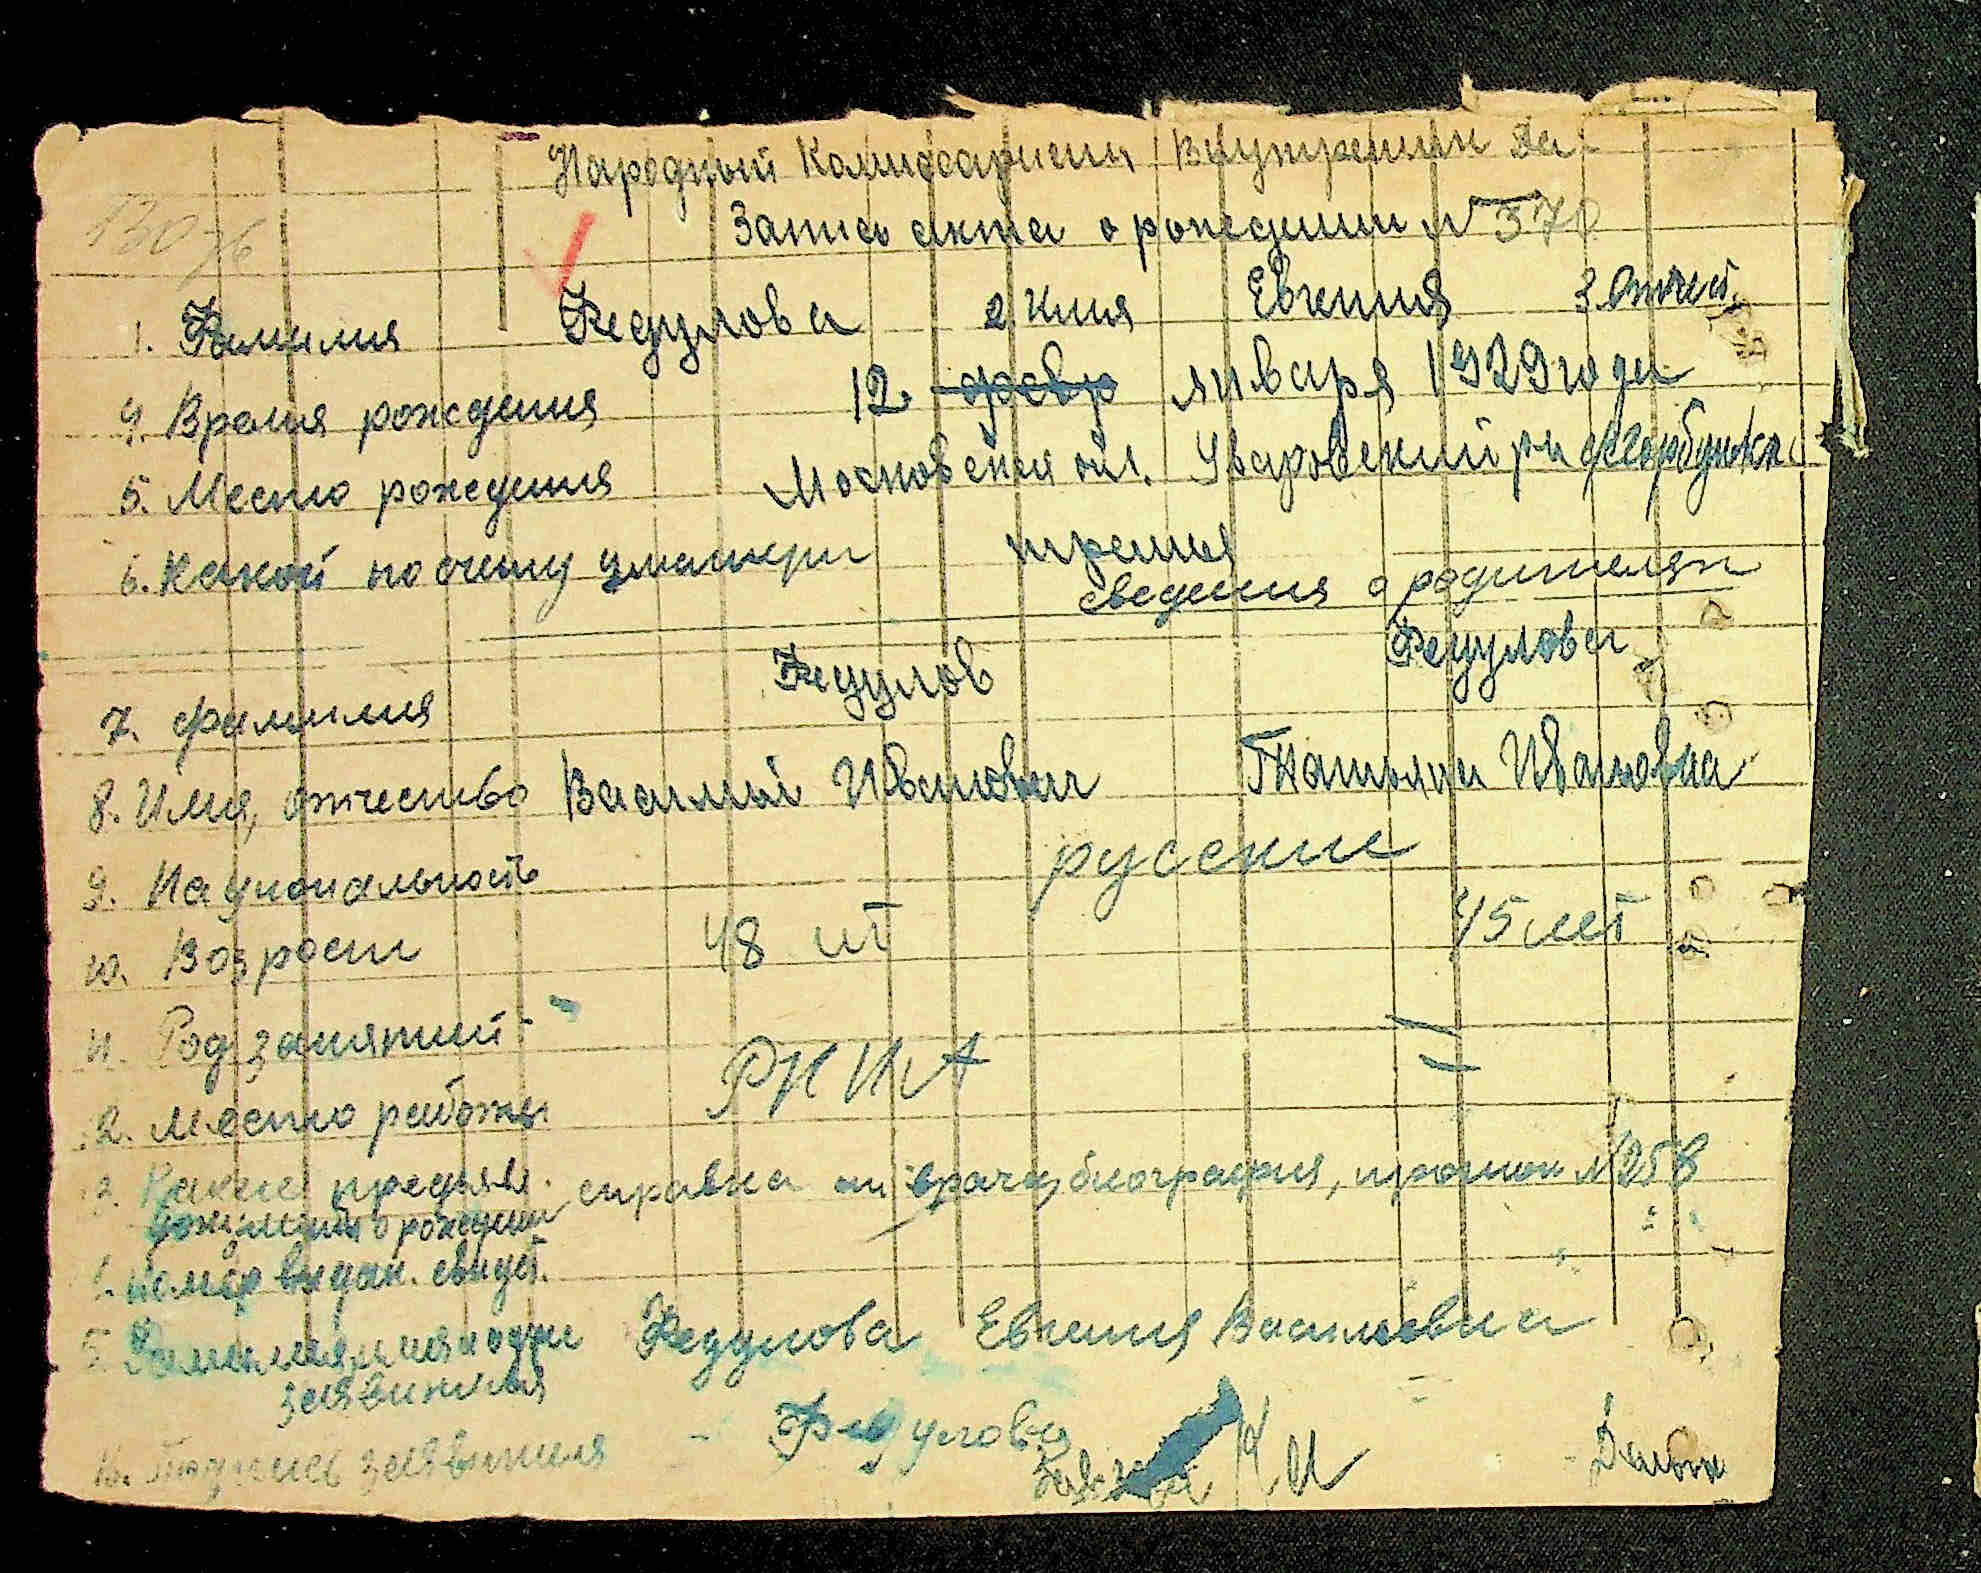 Народный Комиссариат Внутренних Де
Запись акта о рождении N 370
1. Фамилия Федулова 2 Имя Евгения 3 Отчест.
4. Время рождения 12 февр января 1929 года
5. Место рождения Московская обл. Уваровский р-н
6. Какой по счету у матери третья
сведения о родителях
7. Фамилия Федулов Федулова
8. Имя, отчество Василий Иванович Татьяна Ивановна
9. Национальность русские
10. Возраст 48 лет 45 лет
11. Род занятий
2. Место работы РККА
Какие предъявл. справка от врача, биография, N 258
о рождении
Номер выдан. свидет.
5. Фамилия, имя Федулова Евгения Васильевна
заявителя
Подпись заявителя Федулова